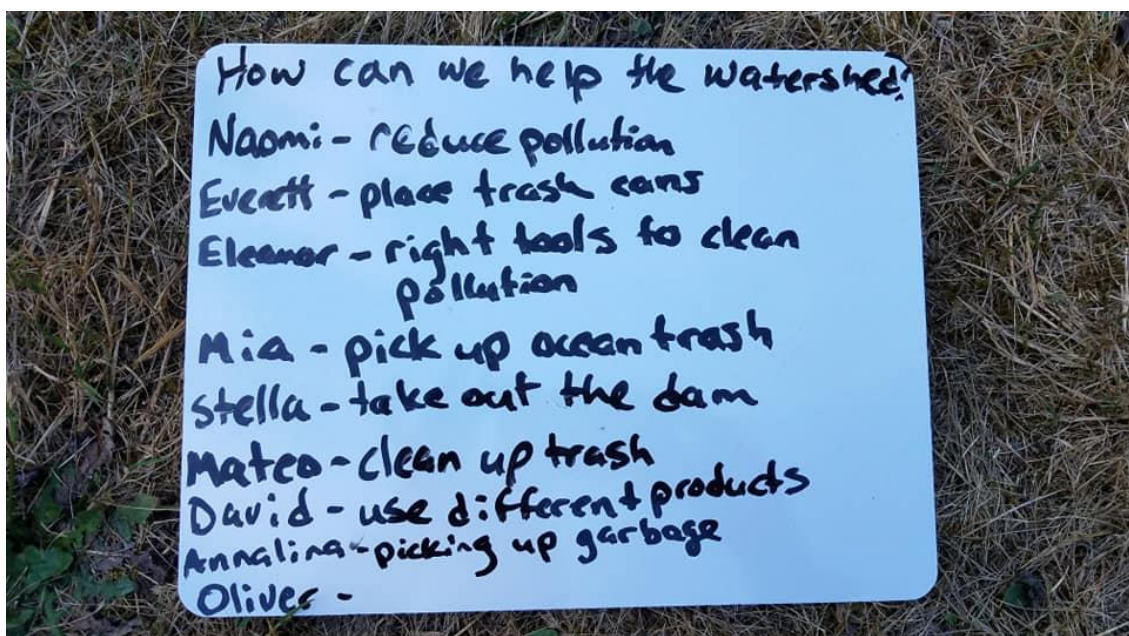 How can we help the watershed?
Naomi - reduce pollution
Everett - place trash cans
Eleanor - right tools to clean
pollution
Mia - pick up ocean trash
Stella - take out the dam
Mateo - clean up trash
David - use different products
Annalina - picking up garbage
Oliver -